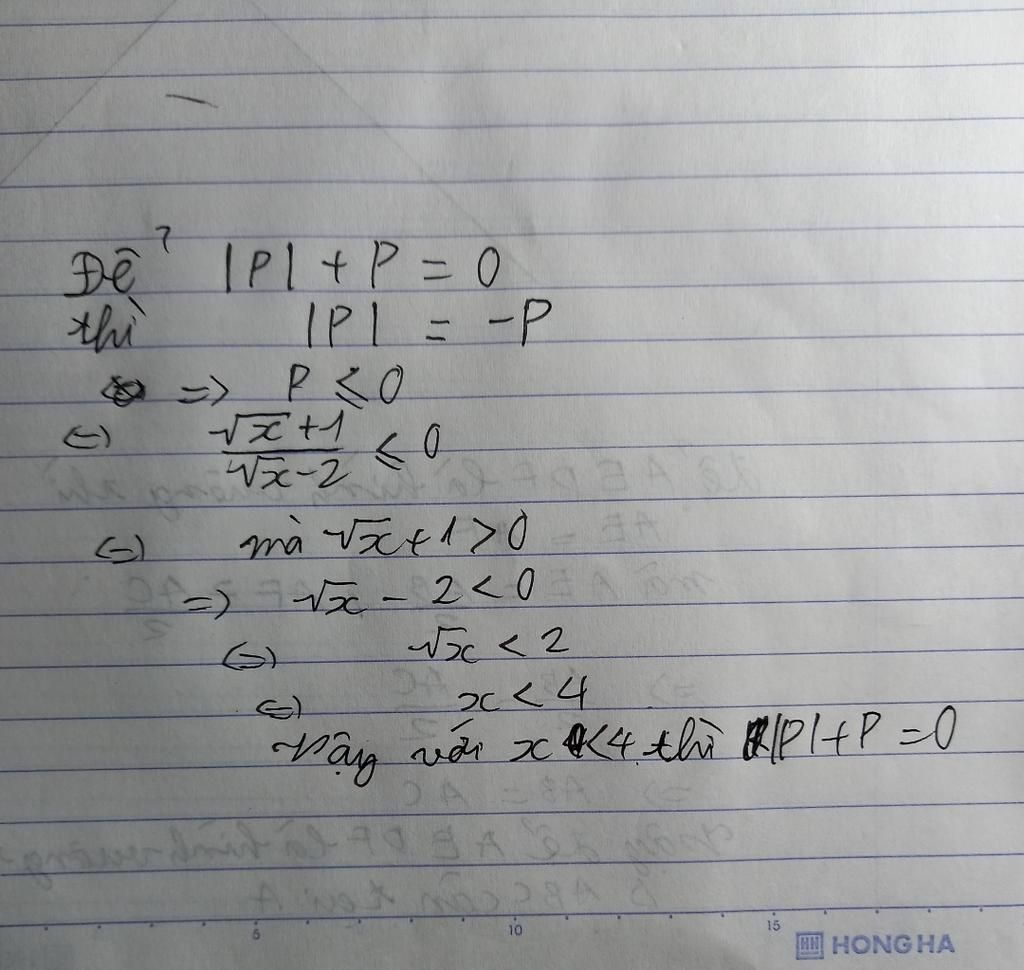 Để |P| + P = 0
thì |P| = -P
=> P ≤ 0
<=> (√x + 1)/(√x - 2) ≤ 0
<=> mà √x + 1 > 0
=> √x - 2 < 0
<=> √x < 2
<=> x < 4
Vậy với x < 4 thì |P| + P = 0
5 10 15
HONG HA